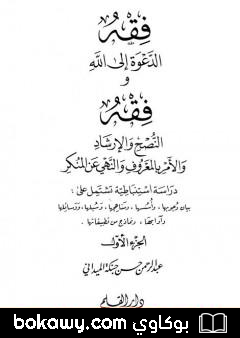 فقه
الدعوة إلى الله
و
فقه
النصح والإرشاد
والأمر بالمعروف والنهي عن المنكر
دراسة استنباطية تشتمل على:
بيان وجوبها، وأسسها، ومناهجها، وسبلها، ووسائلها
وآدابها، ونماذج من تطبيقاتها
الجزء الأول
عبد الرحمن حسن حبنكة الميداني
دار القلم
بوكاوي bokawy.com